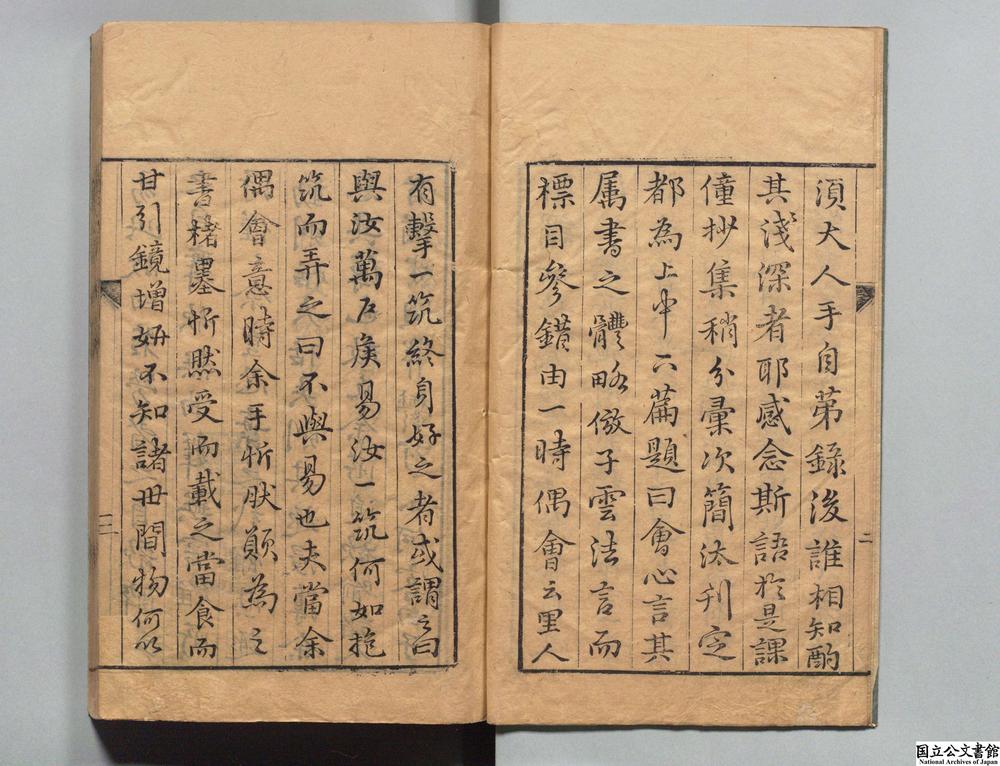 須大人手自苐錄後誰相知酌
其淺深者耶感念斯語於是課
僮抄集稍分彙次簡汰刊定
都為上中下篇題曰會心言其
属書之體略倣子雲法言而
標目參錯由一時偶會云里人
二
有擊一筑終身好之者或謂之曰
與汝萬戶侯易汝一筑何如抱
筑而弄之曰不與易也夫當余
偶會意時余手忻肰顛為之
書楮墨忻然受而載之當食而
甘引鏡增妍不知諸世間物何以
三
国立公文書館
National Archives of Japan